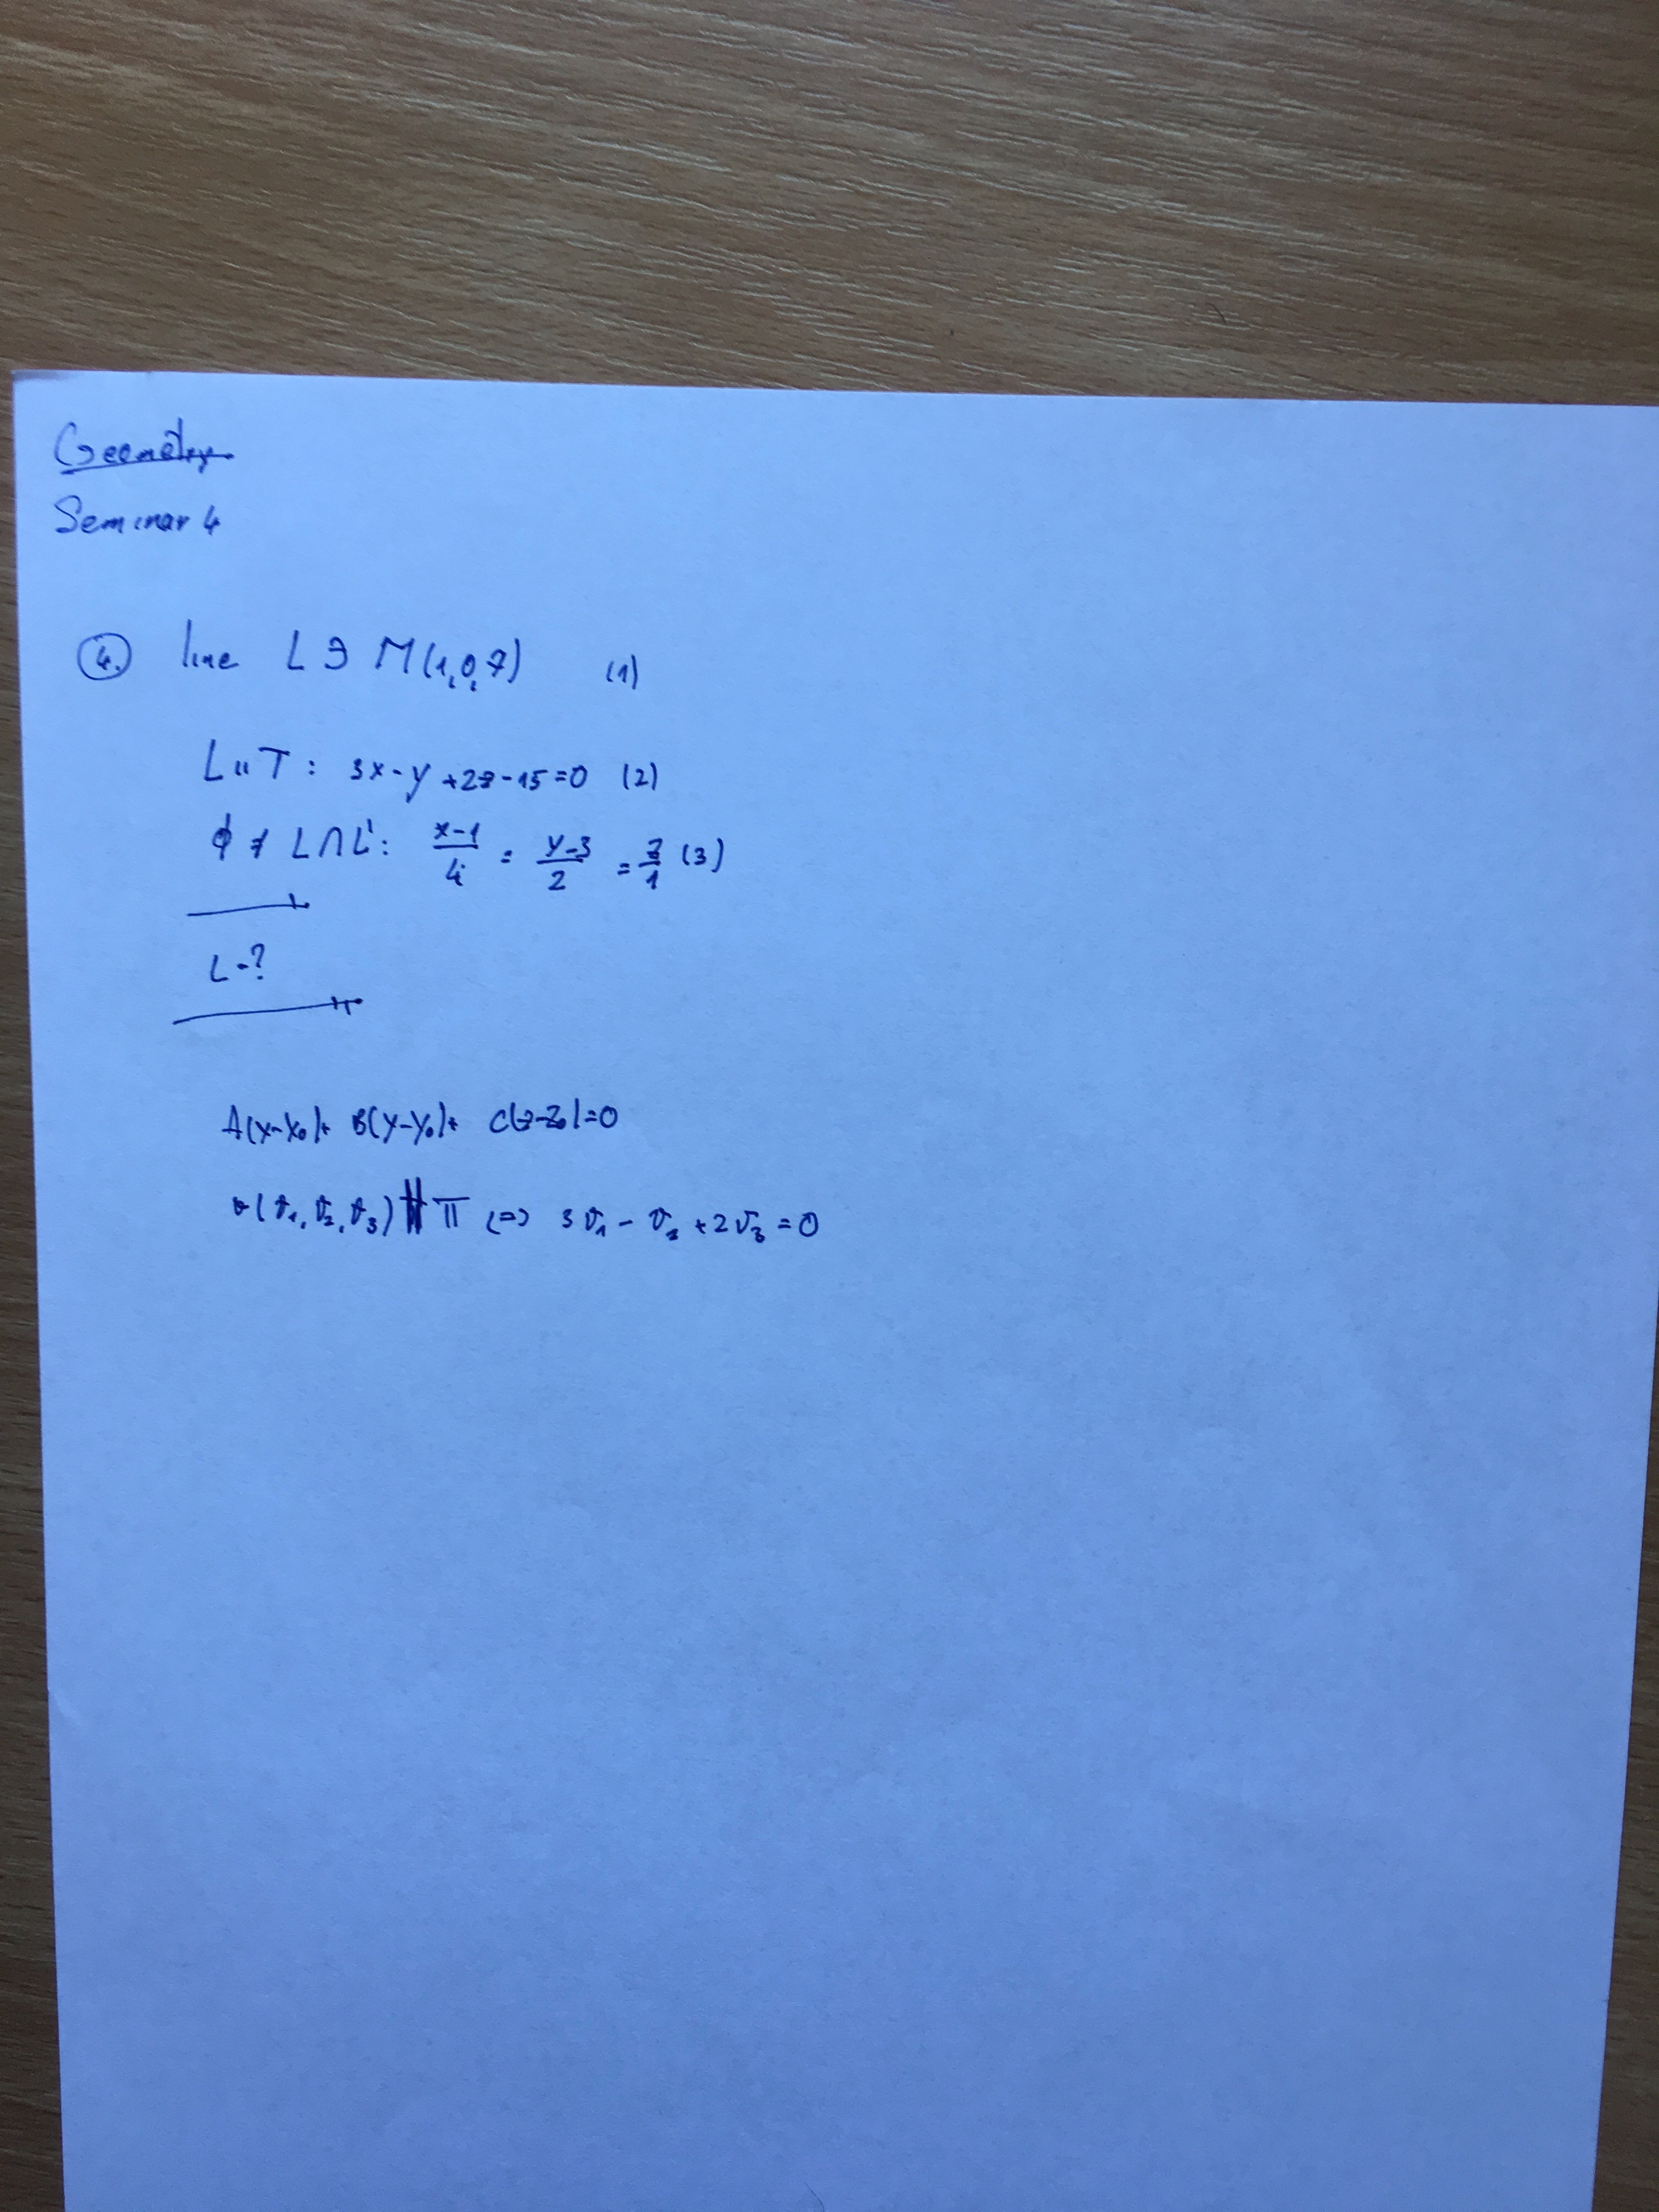 Geometry
Seminar 4
4. line L ∋ M(1,0,7) (1)
L ∥ π: 3x-y+2z-15=0 (2)
ϕ ≠ L∩L': x-1/4 = y-3/2 = z/1 (3)
L-?
A(x-x₀)+ B(y-y₀)+ C(z-z₀)=0
v(v₁,v₂,v₃) ∥ π <=> 3v₁-v₂+2v₃=0